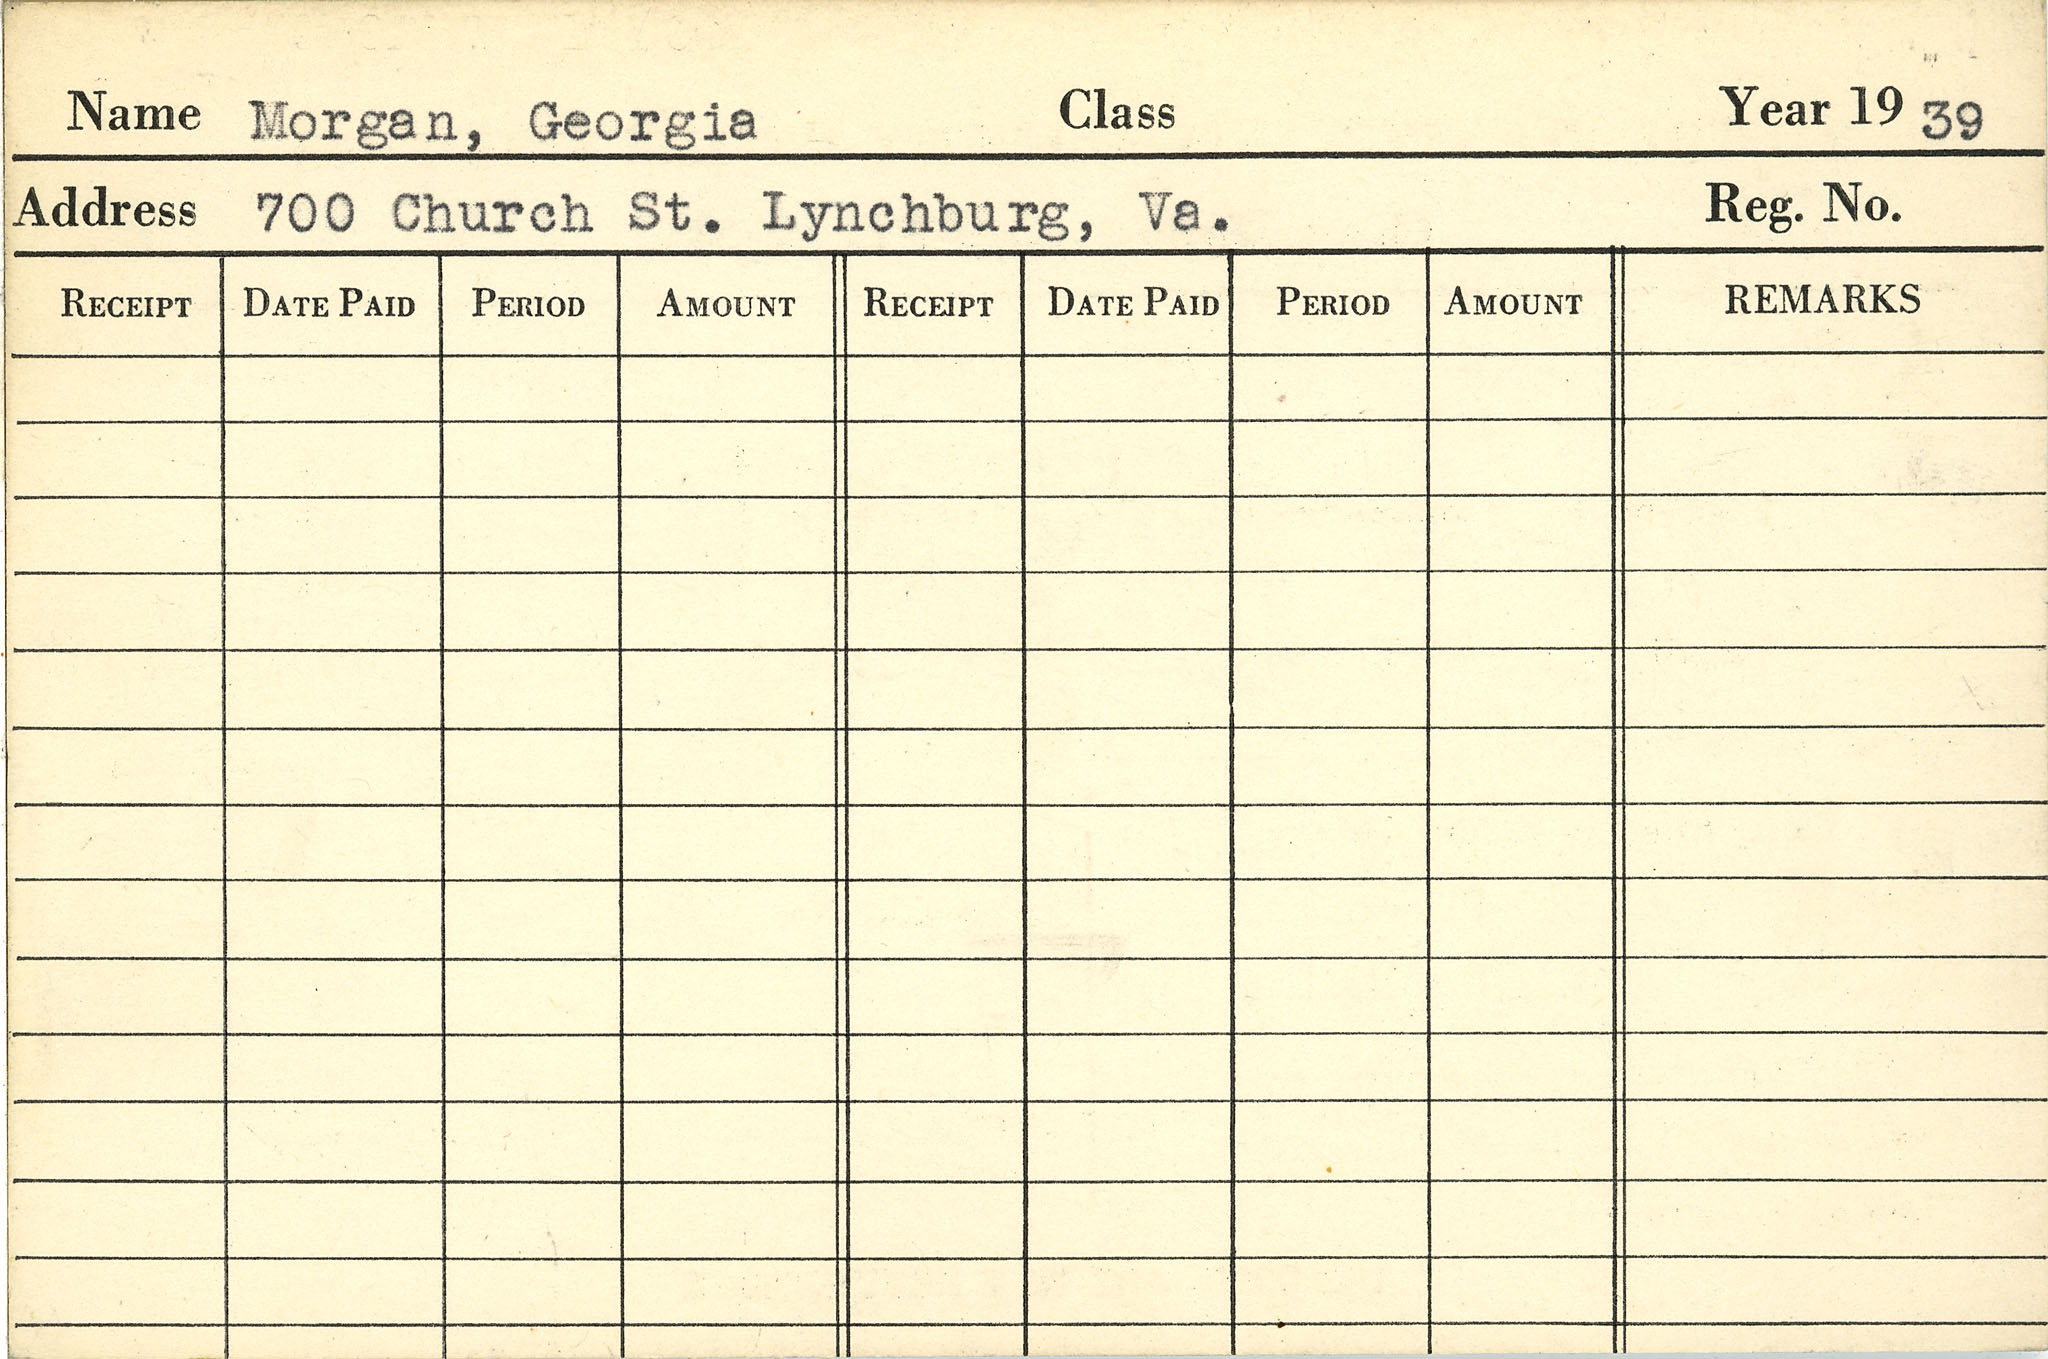 Name Morgan, Georgia Class Year 19 39
Address 700 Church St. Lynchburg, Va. Reg. No.
RECEIPT DATE PAID PERIOD AMOUNT RECEIPT DATE PAID PERIOD AMOUNT REMARKS